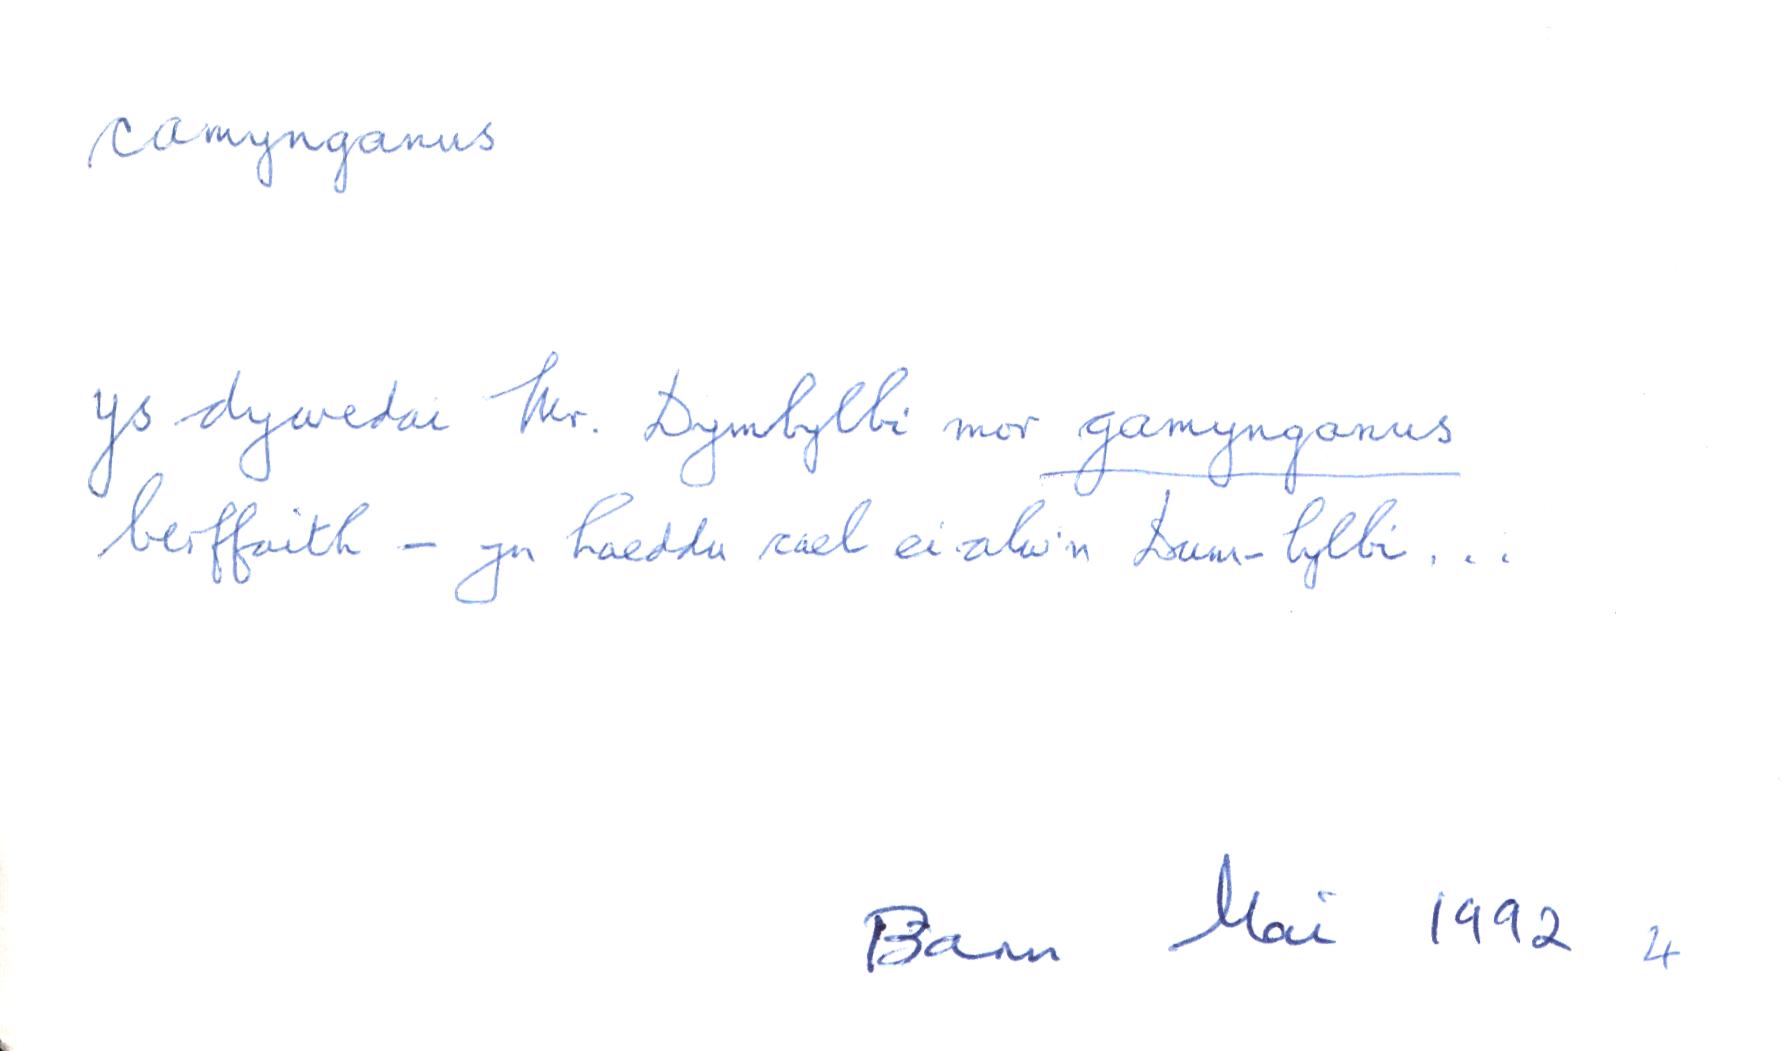 camynganus
ys dywedai Mr. Dymbylbi mor gamynganus
berffaith – yn haeddu cael ei alw'n Dum-bylbi...
Barn Mai 1992 4